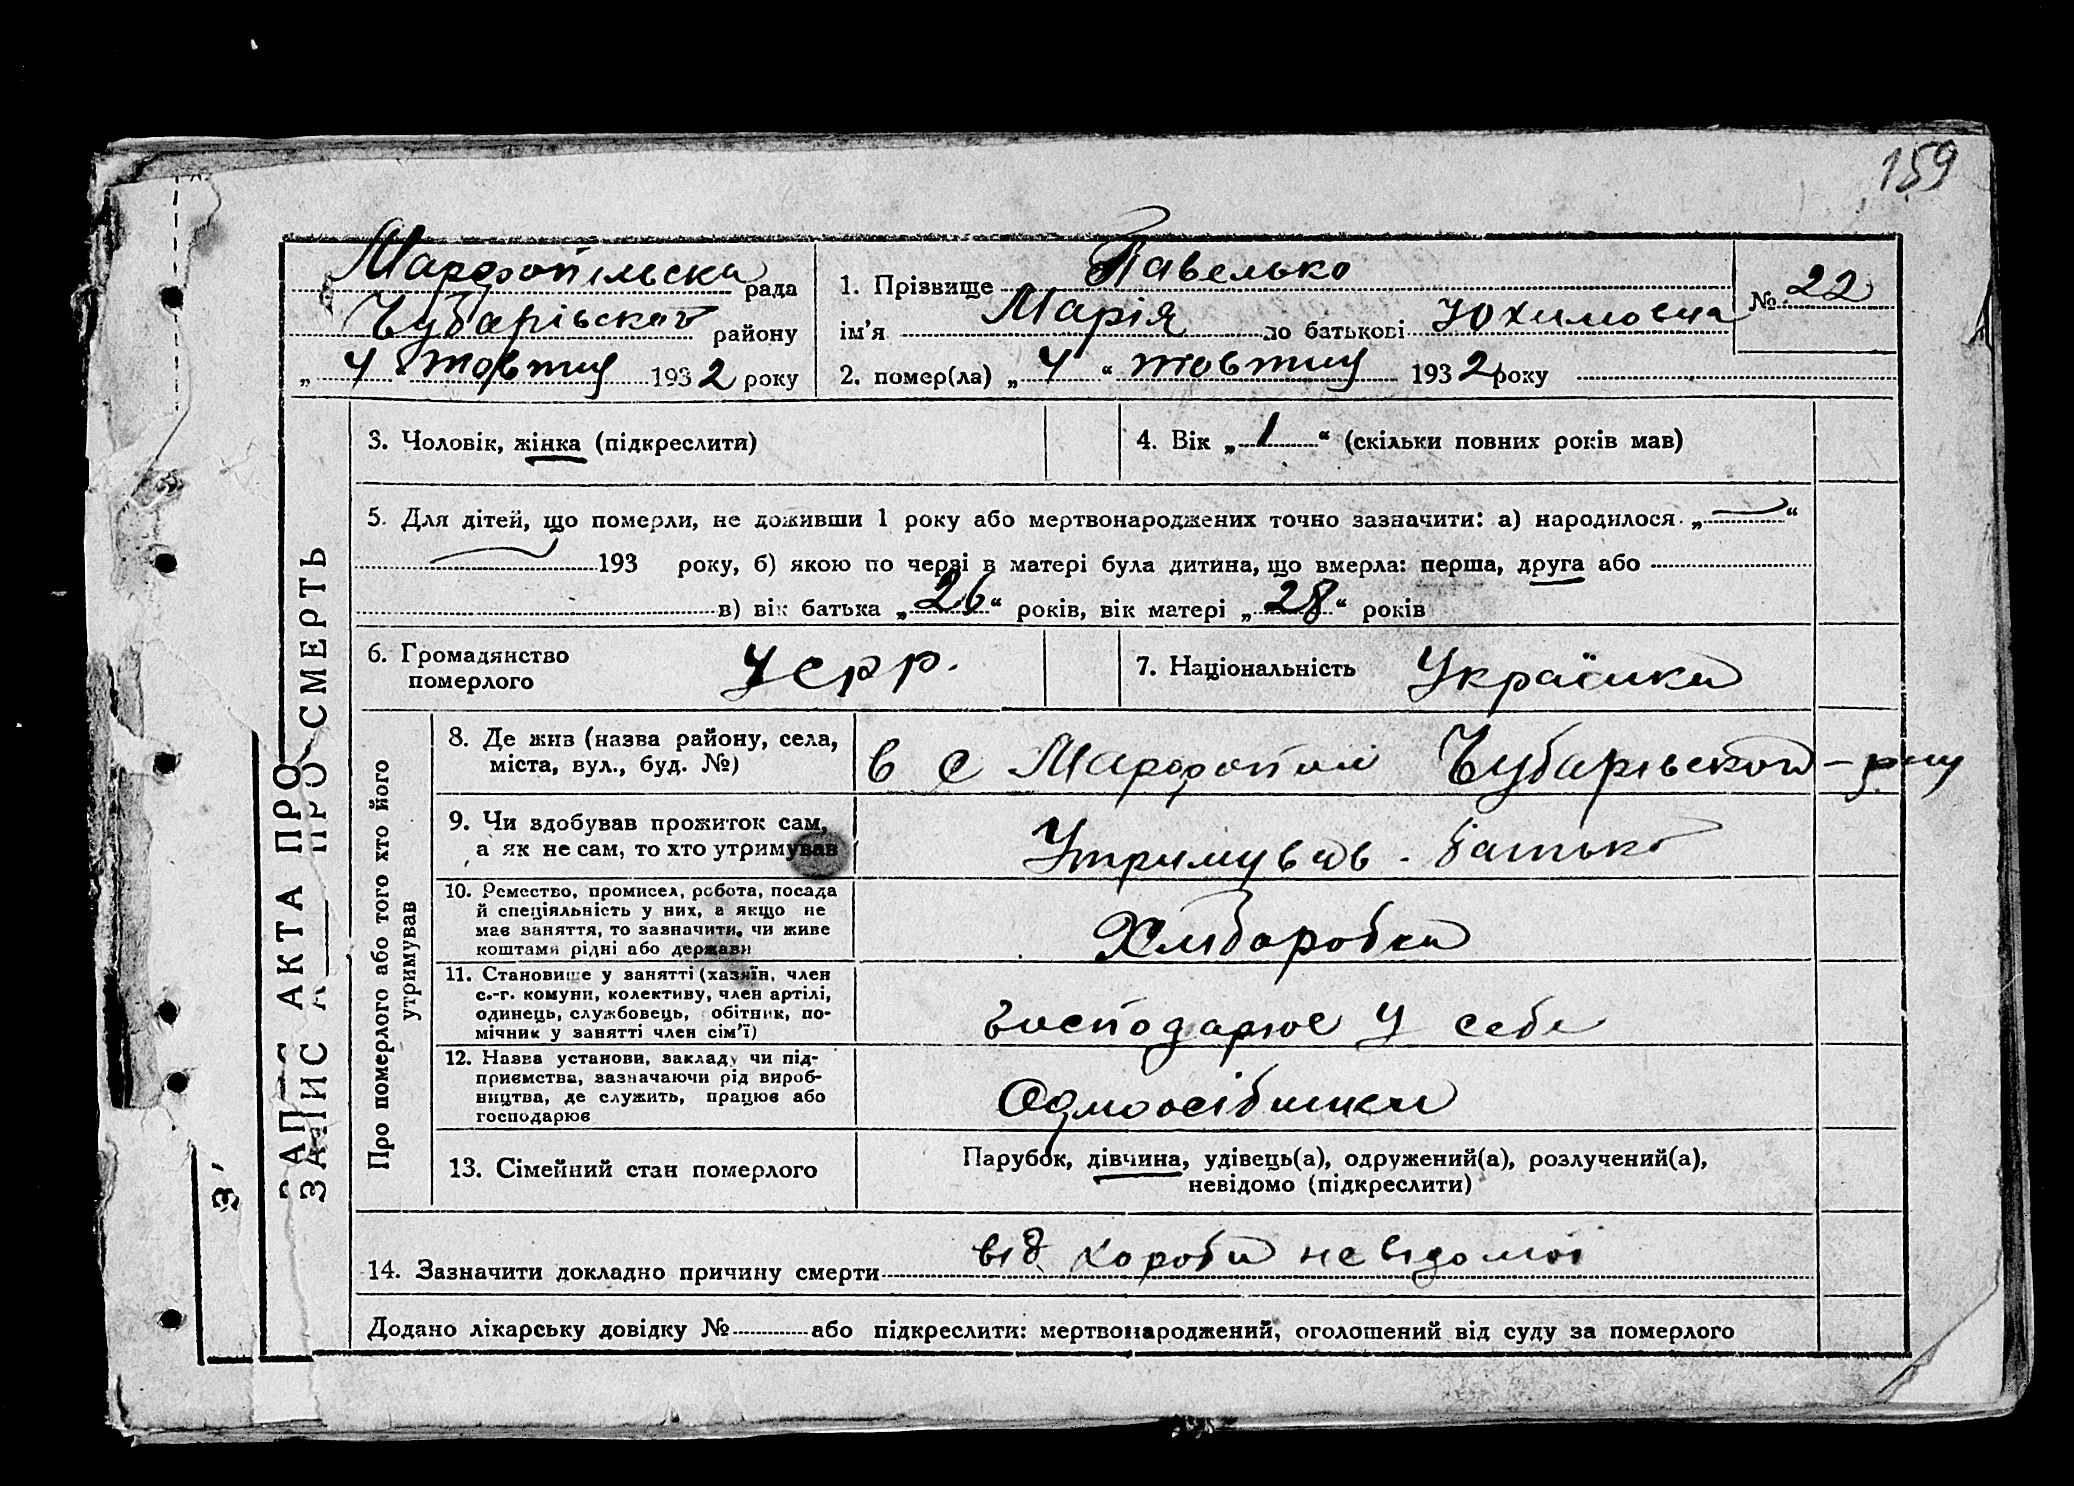 159
Марфопільська рада
Чубарівського району
„ 4 " жовтня 1932 року
1. Прізвище Павелько
ім'я Марія по батькові Юхимовна
№ 22
2. помер(ла) „ 4 “ жовтня 1932 року
3. Чоловік, жінка (підкреслити)
4. Вік „ 1 “ (скільки повних років мав)
5. Для дітей, що померли, не доживши 1 року або мертвонароджених точно зазначити: а) народилося „ — “
— 193 року, б) якою по черзі в матері була дитина, що вмерла: перша, друга або
в) вік батька „ 26 “ років, вік матері „ 28 “ років
6. Громадянство
померлого
Усрр.
7. Національність Українка
ЗАПИС АКТА ПРО
ЗАПИС А ПРО СМЕРТЬ
З
Про померлого або того хто його
утримував
8. Де жив (назва району, села,
міста, вул., буд. №)
в с Марфопілі Чубарівського р-ну
9. Чи здобував прожиток сам,
а як не сам, то хто утримував
Утримував. батько
10. Ремество, промисел, робота, посада
й спеціяльність у них, а якщо не
має заняття, то зазначити, чи живе
коштами рідні або держави
Хліборобка
11. Становище у занятті (хазяїн, член
с.-г. комуни, колективу, член артілі,
одинець, службовець, обітник, по-
мічник у занятті член сім'ї)
господарює у себе
12. Назва установи, закладу чи під-
приємства, зазначаючи рід вироб-
ництва, де служить, працює або
господарює
Одноосібники
13. Сімейний стан померлого
Парубок, дівчина, удівець(а), одружений(а), розлучений(а),
невідомо (підкреслити)
14. Зазначити докладно причину смерти від хороби невідомої
Додано лікарську довідку № або підкреслити: мертвонароджений, оголошений від суду за померлого